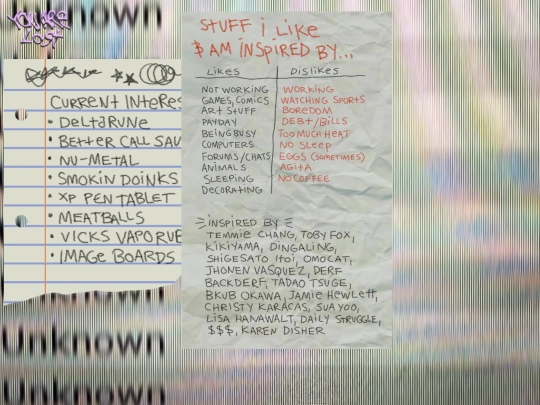 Unknown
YOU ARE LOST
CURRENT INTERES
• DELTARUNE
• BETTER CALL SAU
• NU-METAL
• SMOKIN DOINKS
• XP PEN TABLET
• MEATBALLS
• VICKS VAPORUB
• IMAGE BOARDS
STUFF i LIKE
$ AM INSPIRED BY...
LIKES DISLIKES
NOT WORKING WORKING
GAMES, COMICS WATCHING SPORTS
ART STUFF BOREDOM
PAYDAY DEBT/BILLS
BEING BUSY TOO MUCH HEAT
COMPUTERS NO SLEEP
FORUMS/CHATS EGGS (SOMETIMES)
ANIMALS AGITA
SLEEPING NO COFFEE
DECORATING
INSPIRED BY
TEMMIE CHANG, TOBY FOX,
KIKIYAMA, DINGALING,
SHIGESATO ITOI, OMOCAT,
JHONEN VASQUEZ, DERF
BACKDERF, TADAO TSUGE,
BKUB OKAWA, JAMIE HEWLETT,
CHRISTY KARACAS, SUA YOO,
LISA HANAWALT, DAILY STRUGGLE,
$$$, KAREN DISHER
Unknown
Unknown